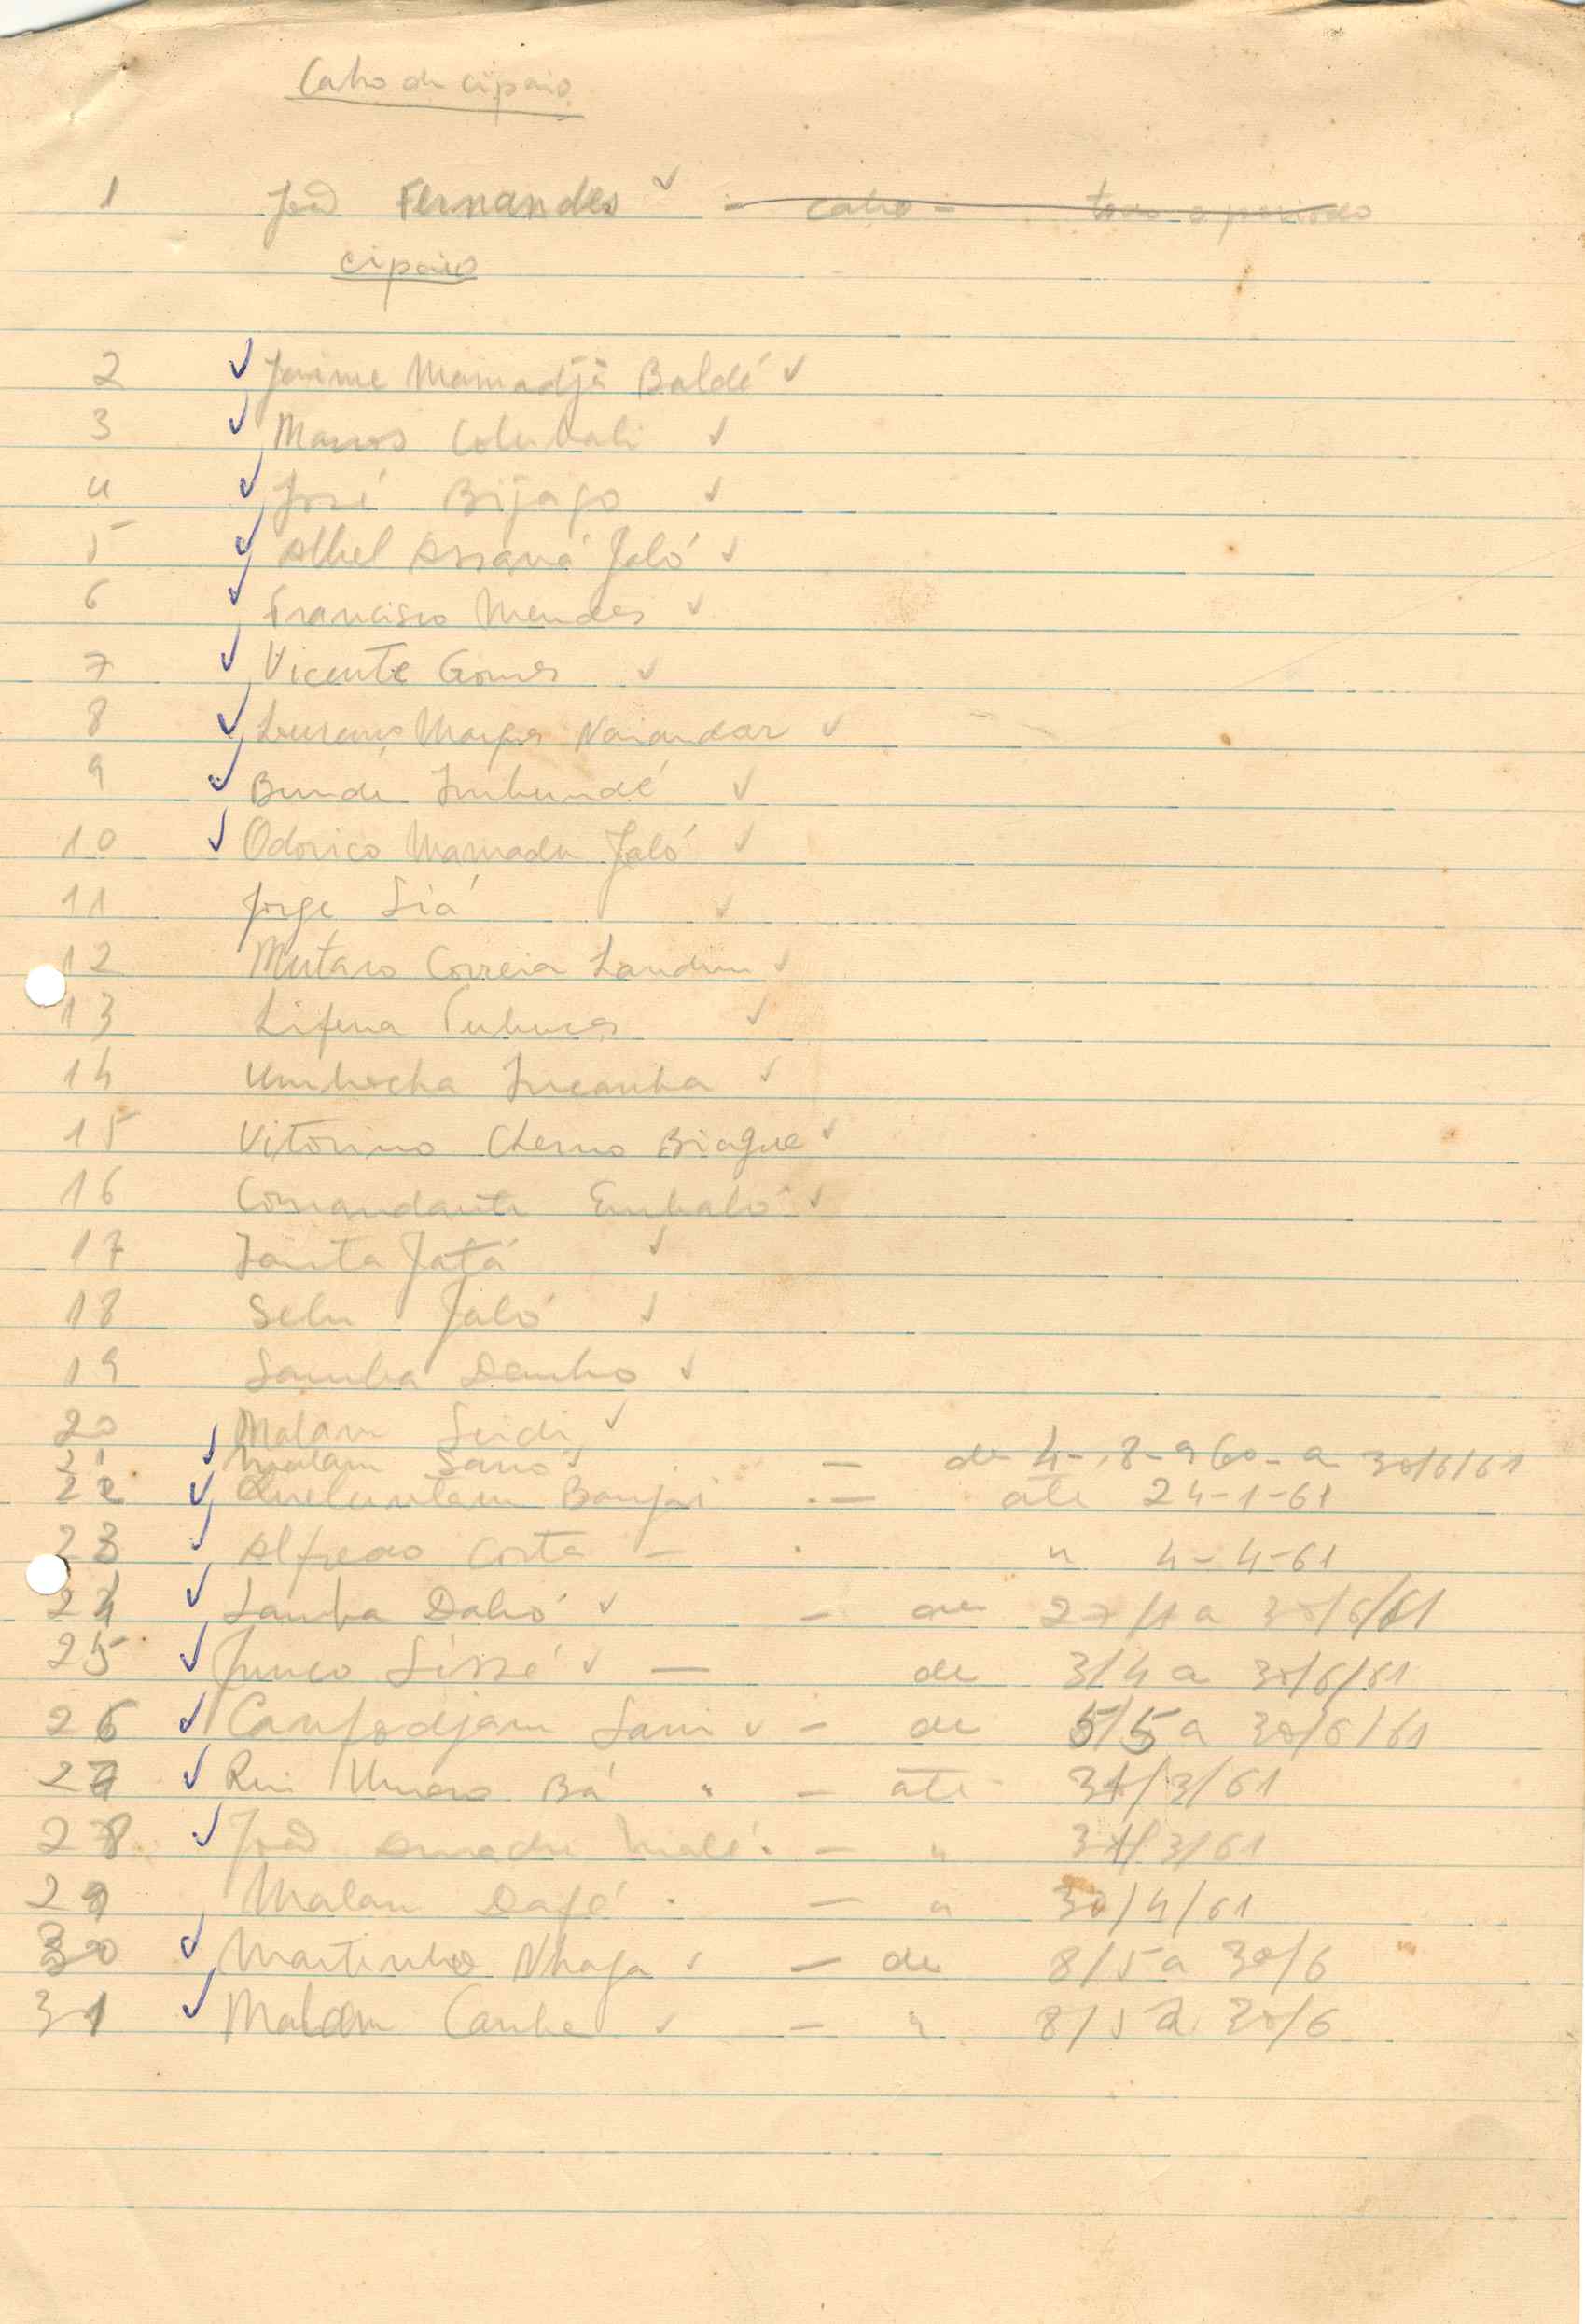 Cabo de cipaio
1 José Fernandes ✓ - cabo - todo o periodo
cipaio
2 ✓ Jaime Mamadjã Baldé ✓
3 ✓ Marcos Colubali ✓
4 ✓ José Bijago ✓
5 ✓ Abel Assaná Jaló ✓
6 ✓ Francisco Mendes ✓
7 ✓ Vicente Gomes ✓
8 ✓ Naiandar ✓
9 ✓ Bundé Imbundé ✓
10 ✓ Odorico Mamadu Jaló ✓
11 Jorge Siá ✓
12 Mutaro Correia Landim ✓
13 Lifena ✓
14 Umbocha Incanha ✓
15 Vitorino Cherno Biague ✓
16 Comandante Embaló ✓
17 Jatá ✓
18 Selu Jaló ✓
19 Samba Dembo ✓
20 Malam Seidi ✓
21 ✓ Malam Sano ✓ - de 4-8-960 a 30/6/61
22 ✓ Queluntam Banjai - até 24-1-61
23 ✓ Alfredo Costa - " 4-4-61
24 ✓ Samba Dabó ✓ - de 27/1 a 30/6/61
25 ✓ Junco Sissé ✓ - de 3/4 a 30/6/61
26 ✓ Canfodjam Sani ✓ - de 5/5 a 30/6/61
27 ✓ Rui Umaro Bá - até 31/3/61
28 ✓ José Amadu Malé - " 31/3/61
29 Malam Dafé - " 30/4/61
30 ✓ Martinho Nhaga ✓ - de 8/5 a 30/6
31 ✓ Malam Canhe ✓ - " 8/5 a 30/6